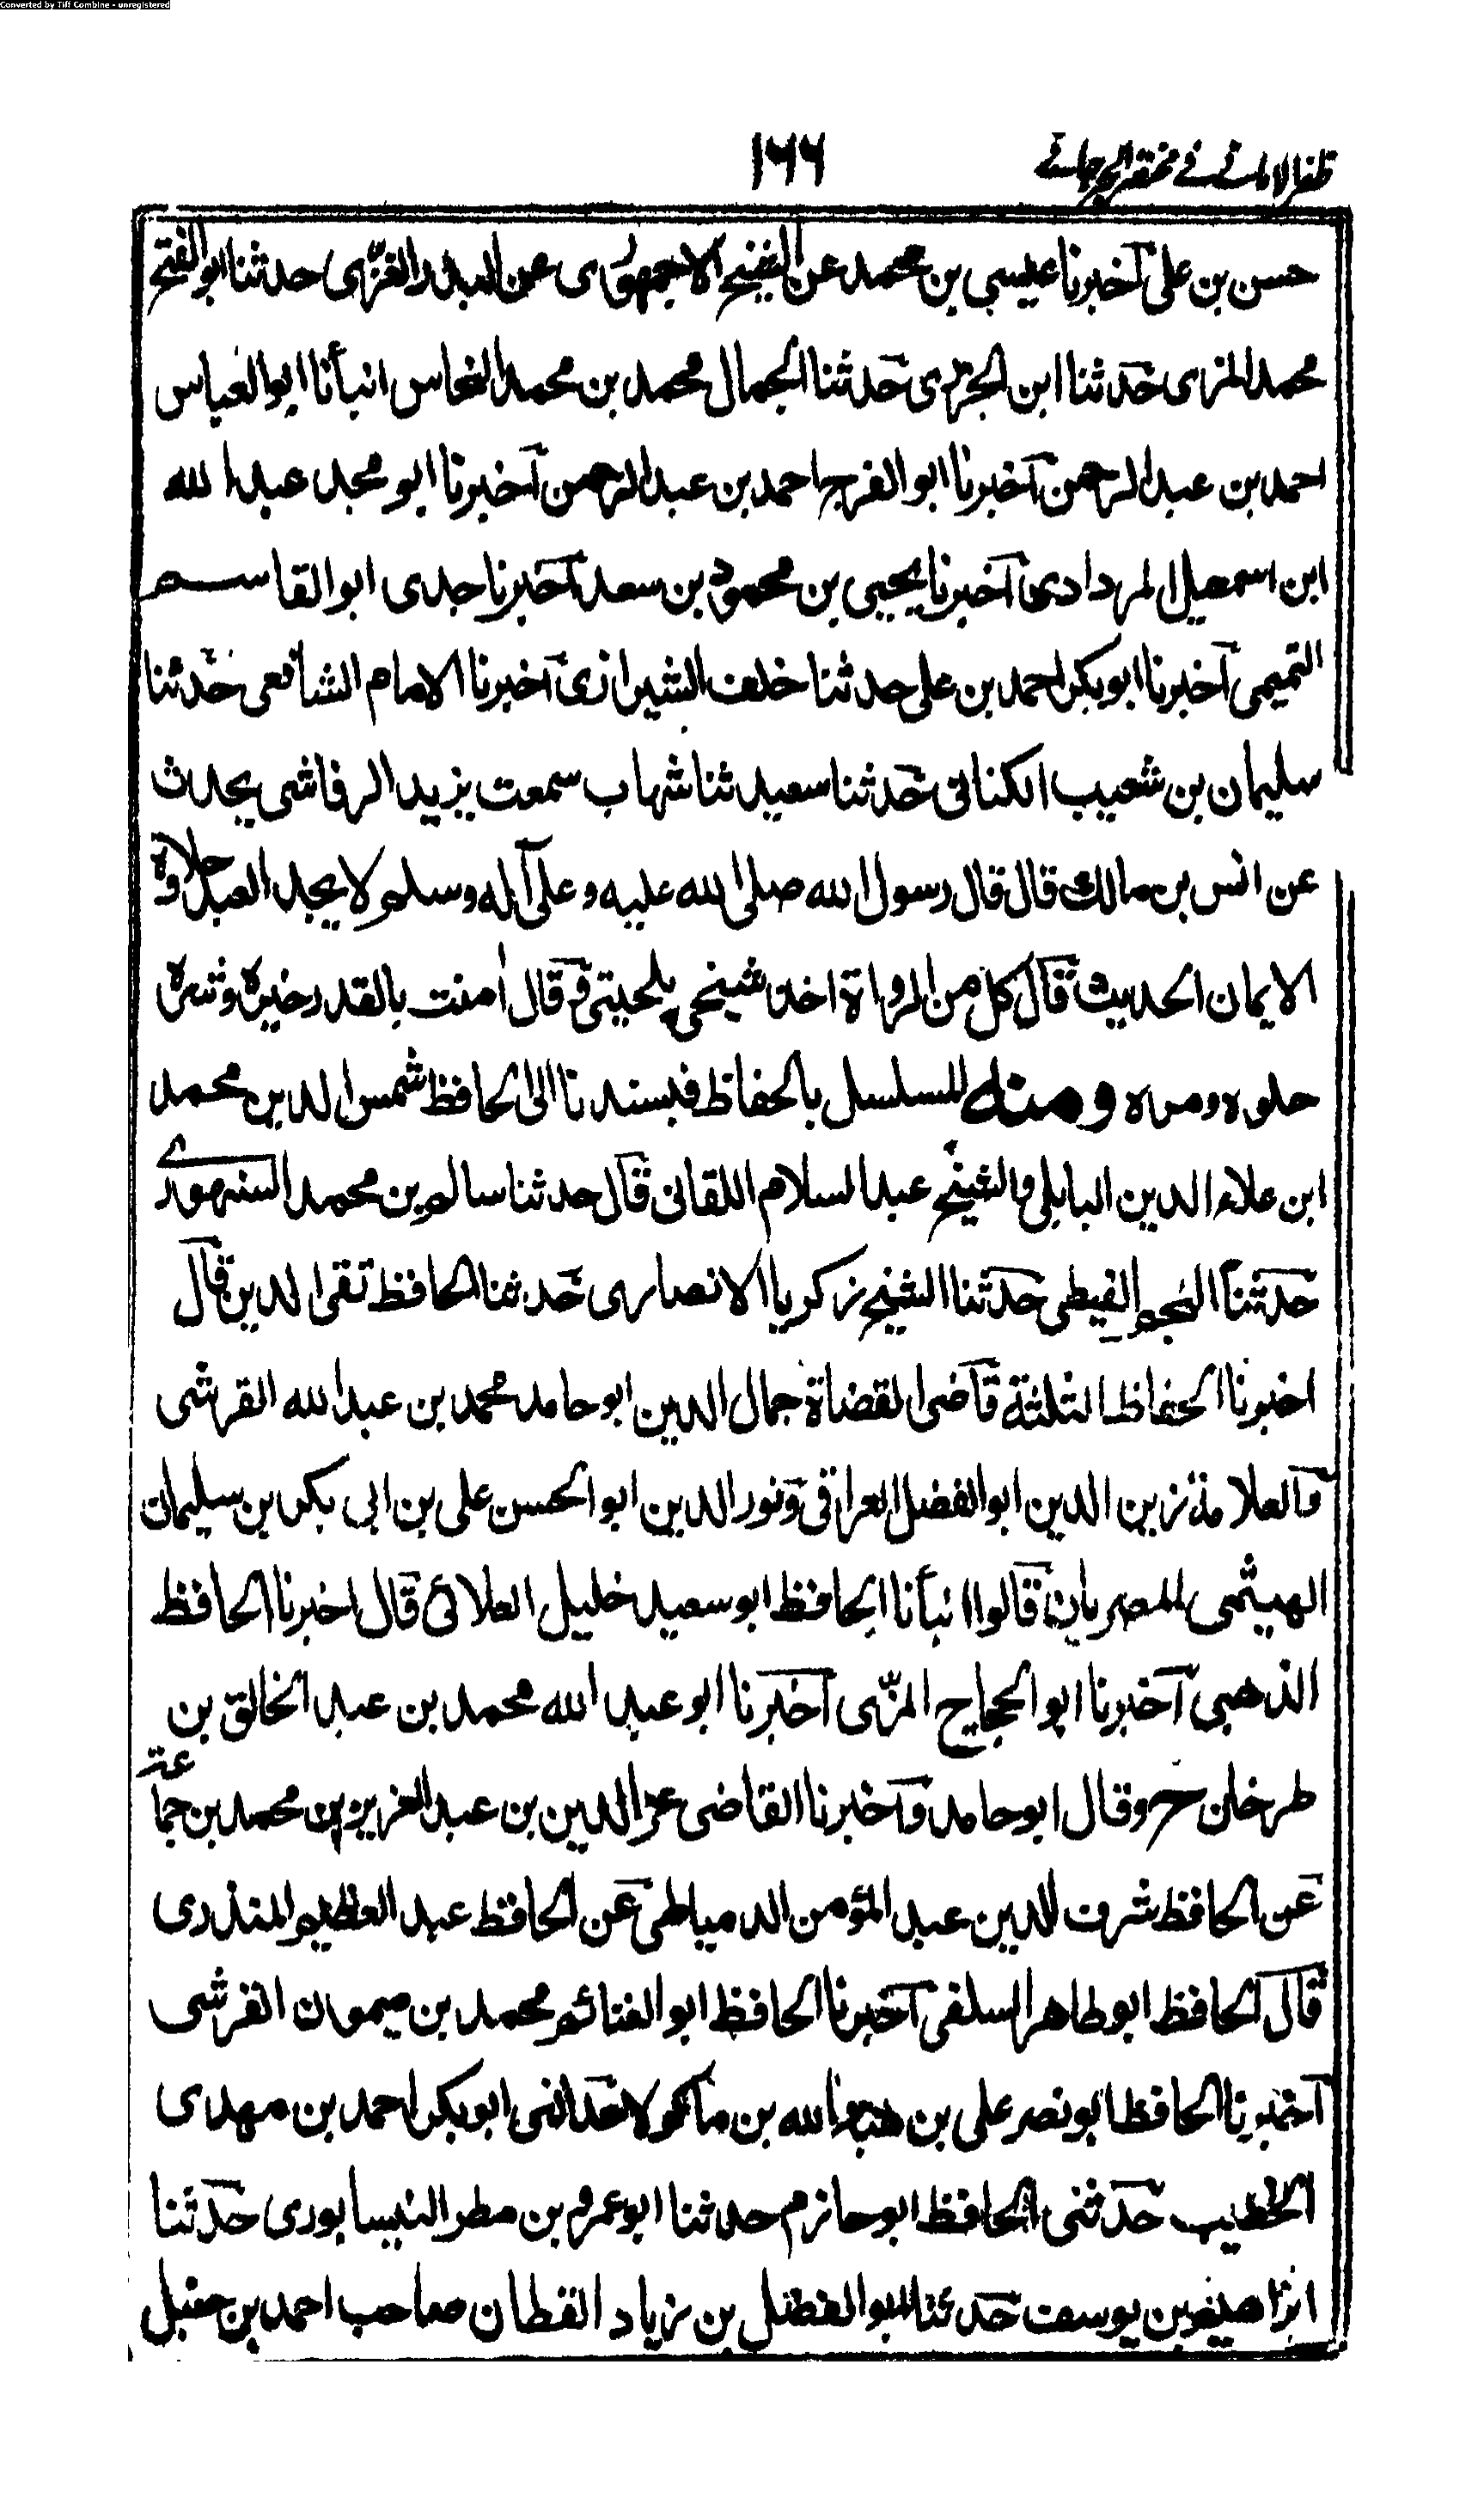 Converted by Tiff Combine - unregistered
ظفر الامانی فی مختصر الجرجانی
۱۶۶
حسن بن علی اخبرنا عیسی بن محمد عن الشیخ الاجهوری عن البدر القرافی حدثنا ابو الفتح
محمد المزی حدثنا ابن الجزری حدثنا الجمال محمد بن محمد النحاس انبأنا ابو العباس
احمد بن عبد الرحمن اخبرنا ابو الفرج احمد بن عبد الرحمن اخبرنا ابو محمد عبد الله
ابن اسمعیل المردادی اخبرنا یحیی بن محمود بن سعد اخبرنا جدی ابو القاسم
التمیمی اخبرنا ابوبکر احمد بن علی حدثنا خلف الشیرازی اخبرنا الامام الشافعی حدثنا
سلیمان بن شعیب الکنانی حدثنا سعید ثنا شهاب سمعت یزید الرقاشی یحدث
عن انس بن مالك قال قال رسول الله صلی الله علیه وعلی آله وسلم لا یجد العبد حلاوة
الایمان الحدیث قال کل من الرواة اخذ شیخی بلحیتی وقال امنت بالقدر خیره وشره
حلوه ومره ومنه المسلسل بالحفاظ فبسندنا الی الحافظ شمس الدین محمد
ابن علاء الدین البابلی والشیخ عبد السلام اللقانی قال حدثنا سالم بن محمد السنهوری
حدثنا النجم الغیطی حدثنا الشیخ زکریا الانصاری حدثنا الحافظ تقی الدین قال
اخبرنا الحفاظ الثلثة قاضی القضاة جمال الدین ابو حامد محمد بن عبد الله القرشی
والعلامة زین الدین ابو الفضل العراقی ونور الدین ابو الحسن علی بن ابی بکر بن سلیمان
الهیثمی المصریان قالوا انبأنا الحافظ ابو سعید خلیل العلائی قال اخبرنا الحافظ
الذهبی اخبرنا ابو الحجاج المزی اخبرنا ابو عبد الله محمد بن عبد الخالق بن
طرخان ح وقال ابو حامد واخبرنا القاضی عز الدین بن عبد العزیز بن محمد بن جماعة
عن الحافظ شرف الدین عبد المؤمن الدمیاطی عن الحافظ عبد العظیم المنذری
قال الحافظ ابو طاهر السلفی اخبرنا الحافظ ابو الغنائم محمد بن میمون القرشی
اخبرنا الحافظ ابو نصر علی بن هبة الله بن ماکولا حدثنی ابوبکر احمد بن مهدی
الخطیب حدثنی الحافظ ابو حازم حدثنا ابو عمرو بن مطر النیسابوری حدثنا
ابراهیم بن یوسف حدثنا ابو الفضل بن زیاد القطان صاحب احمد بن حنبل